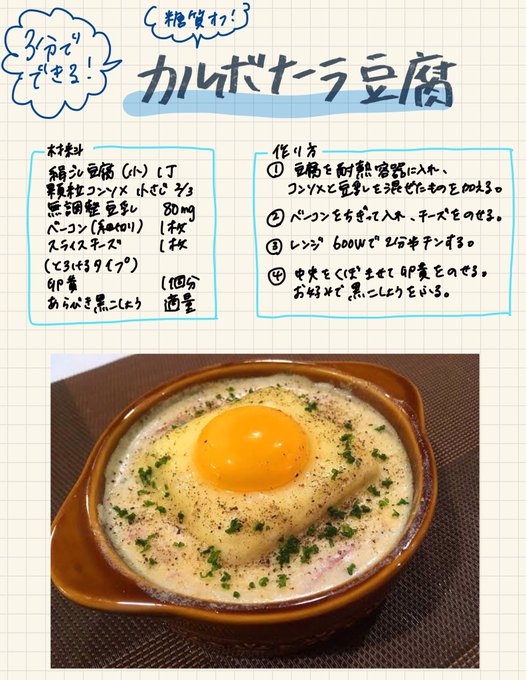 3分で
できる!
糖質オフ!
カルボナーラ豆腐
材料
絹ごし豆腐(小) 1丁
顆粒コンソメ 小さじ 2/3
無調整豆乳 80mg
ベーコン(細切り) 1枚
スライスチーズ 1枚
(とろけるタイプ)
卵黄 1個分
あらびき黒こしょう 適量
作り方
① 豆腐を耐熱容器に入れ、
コンソメと豆乳を混ぜたものを加える。
② ベーコンをちぎって入れ、チーズをのせる。
③ レンジ 600Wで2分半チンする。
④ 中央をくぼませて卵黄をのせる。
お好みで黒こしょうをふる。